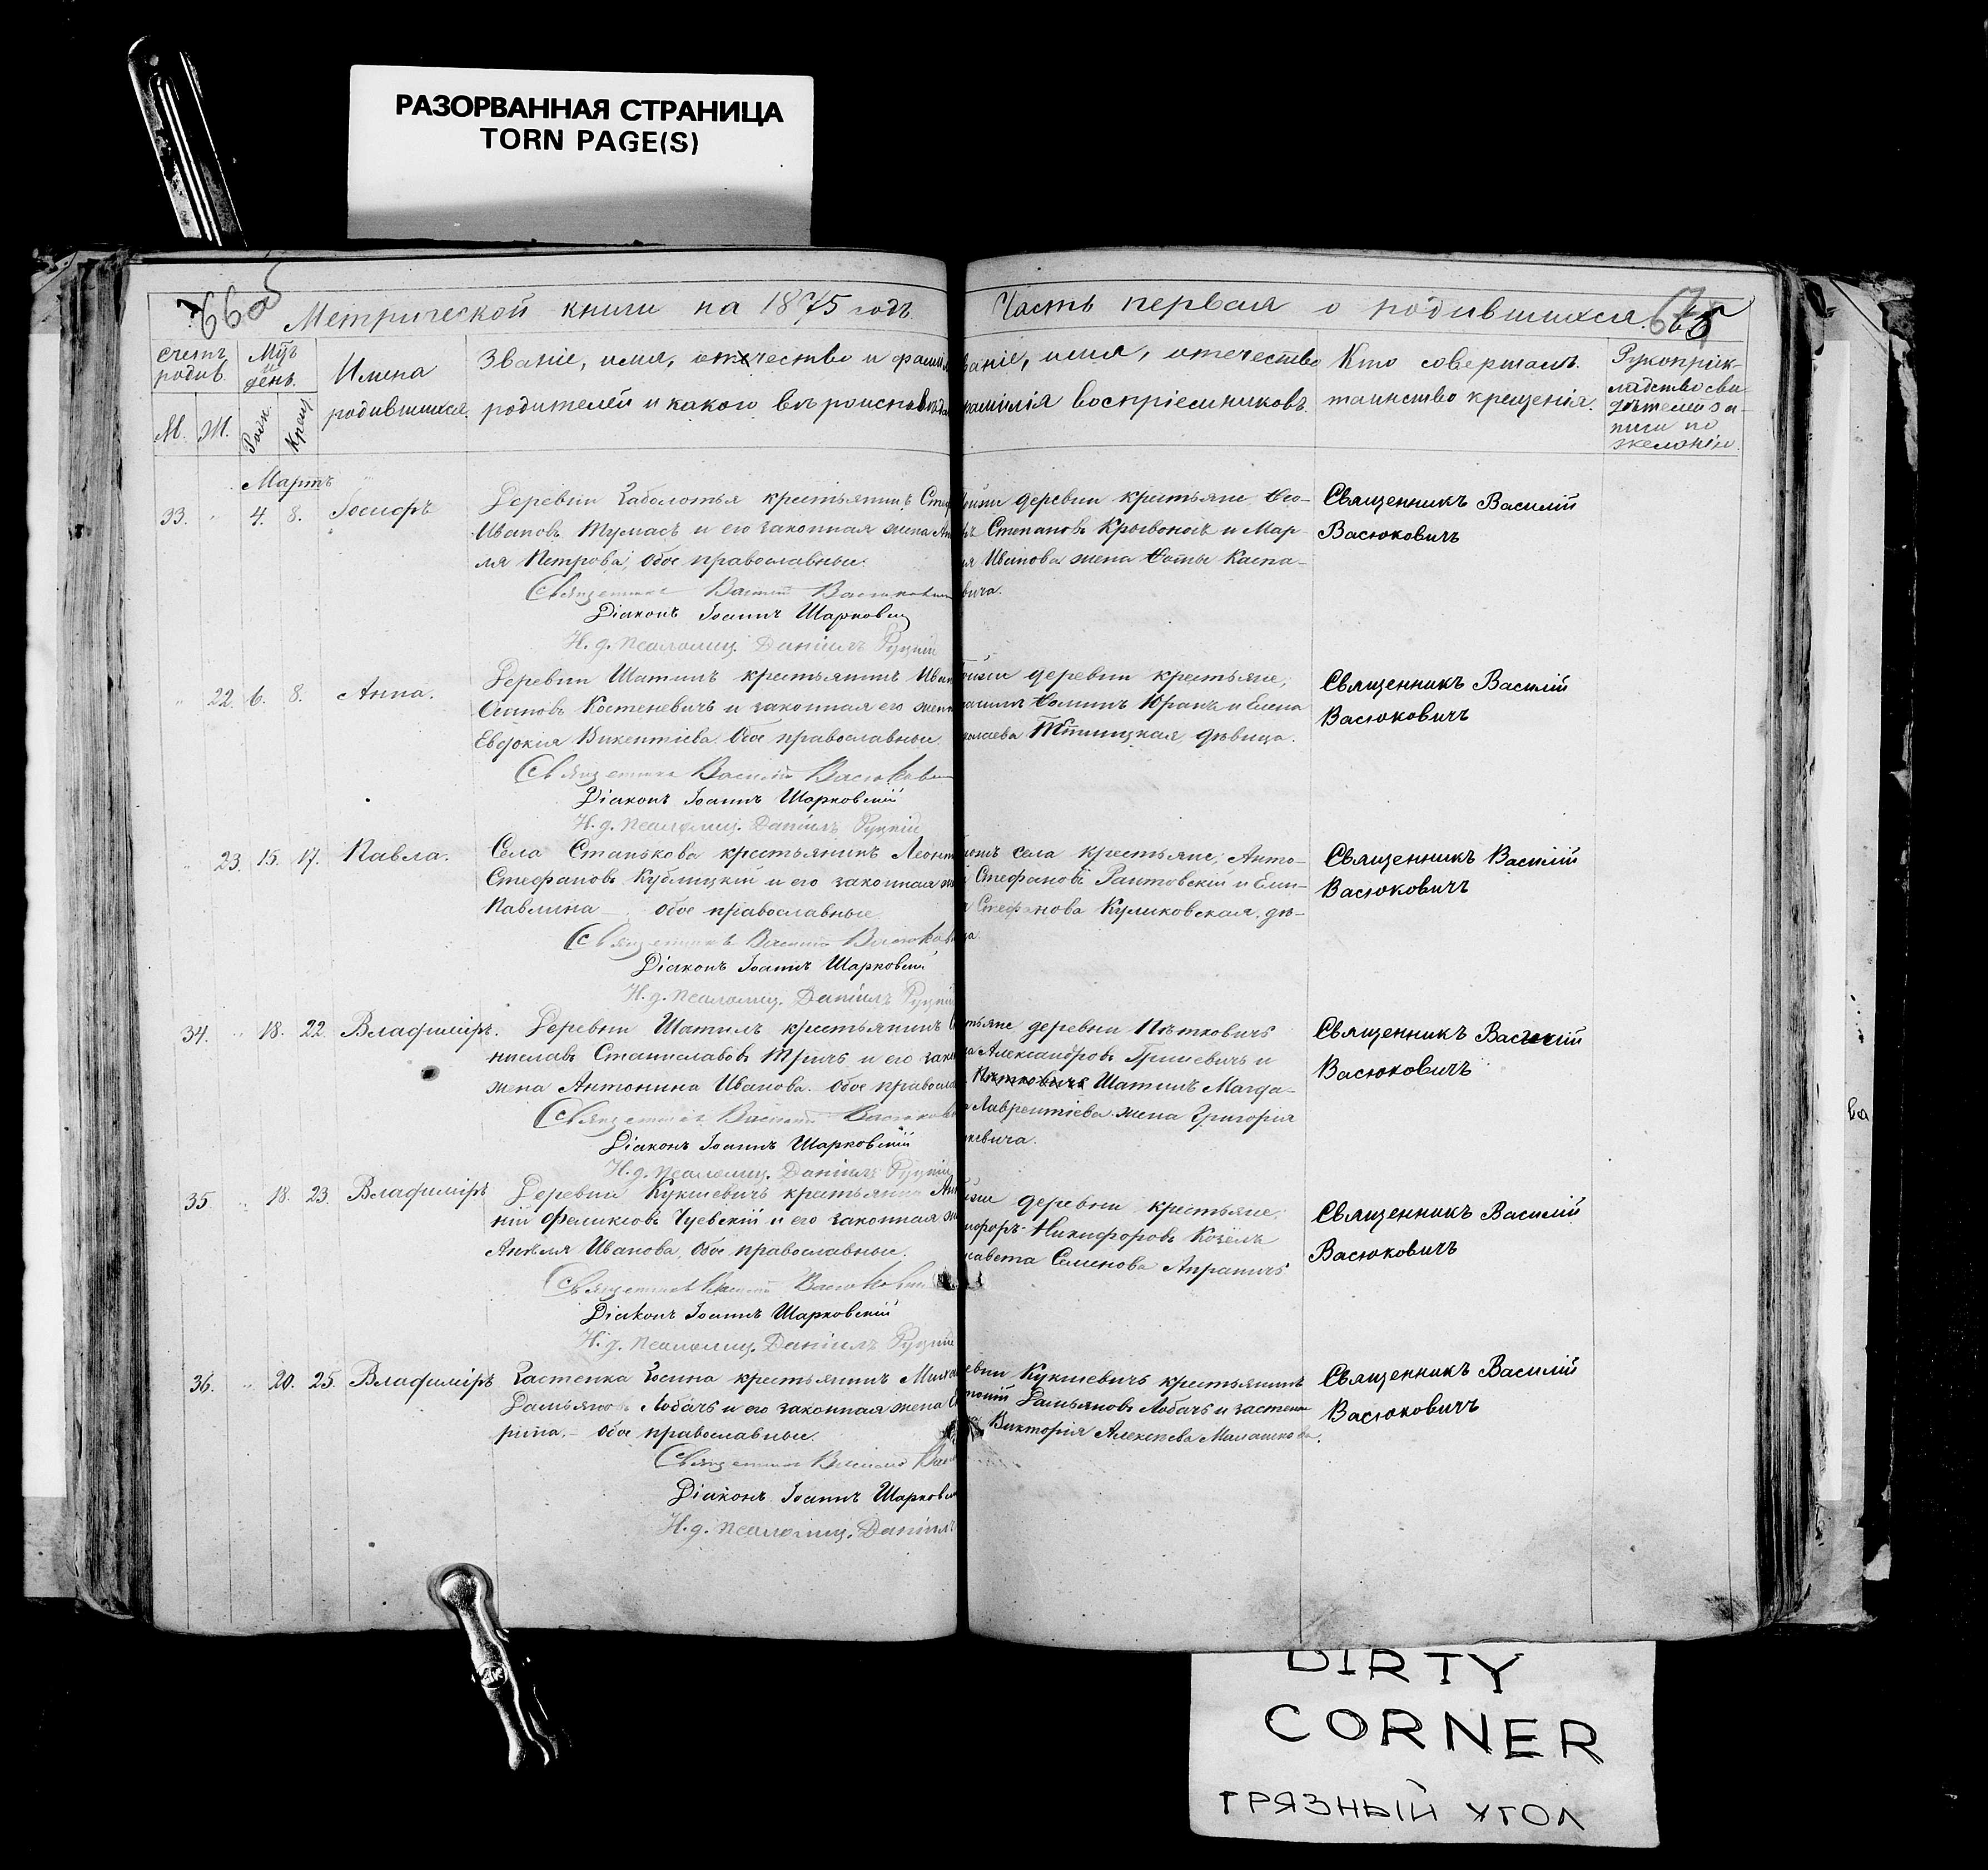 РАЗОРВАННАЯ СТРАНИЦА
TORN PAGE(S)
Метрической книги на 1875 годъ.
Часть первая о родившихся.
счетъ родив.
М. Ж.
Мѣц. и день.
Рожд. Крещ.
Имена
родившихся.
Званіе, имя, отчество и фамил
родителей и какого вѣроисповѣда
ваніе, имя, отечество
фамилія воспріемниковъ.
Кто совершалъ
таинство крещенія.
Рукоприк-
ладство сви-
дѣтелей за-
писи по
желанію.
Мартъ
33. " 4. 8. Іосифъ
Деревни Заболотья крестьянинъ Стеф
Ивановъ Тумасъ и его законная жена Ан
ля Петрова, обое православные.
Священникъ Василій Васюкович
Діаконъ Іоаннъ Шарковскі
И. д. псаломщ. Даніилъ Руцкій
деревни крестьяне
Степановъ Кривоносъ и Мар-
Иванова жена Каспа-
вича.
Священникъ Василій
Васюковичъ
" 22. 6. 8. Анна.
Деревни Шатилъ крестьянинъ Иван
Осиповъ Костеневичъ и законная его жена
Евдокія Викентіева. Обое православные.
Священникъ Василій Васюкович
Діаконъ Іоаннъ Шарковскій
И. д. псаломщ. Даніилъ Руцкій
деревни крестьяне;
Юранъ и Елена
колаева дѣвица.
Священникъ Василій
Васюковичъ
" 23. 15. 17. Павла.
Села Станькова крестьянинъ Леонт
Стефановъ Кублицкій и его законная ж
Павлина обое православные
Священникъ Василій Васюков
Діаконъ Іоаннъ Шарковскій
И. д. псаломщ. Даніилъ Руцкій
села крестьяне; Анто-
Стефановъ Рантовскій и Ели-
Стефанова Куликовская, дѣ-
ца
Священникъ Василій
Васюковичъ
34. " 18. 22. Владиміръ.
Деревни Шатилъ крестьянинъ С
ниславъ Станиславовъ Тричъ и его зако
жена Антонина Иванова. Обое правосла
Священникъ Василій Васюкови
Діаконъ Іоаннъ Шарковскій
И. д. псаломщ. Даніилъ Руцкій
тьяне деревни Пѣтковичъ
Александровъ Гришевичъ и
Пѣтковичъ Шатилъ Магда-
Лаврентіева жена Григорія
кевича.
Священникъ Василій
Васюковичъ
35. " 18. 23. Владиміръ
Деревни Кукшевичъ крестьянин Ан
ній Феликсовъ Чуевскій и его законная ж
Анеля Иванова, обое православные.
Священникъ Василій Васюкович
Діаконъ Іоаннъ Шарковскій
И. д. псаломщ. Даніилъ Руцкій
деревни крестьяне:
кифоръ Никифоровъ Козелъ
савета Семенова Апраничъ
Священникъ Василій
Васюковичъ
36. " 20. 25. Владиміръ
Застенка Зосина крестьянинъ Миха
Дамьяновъ Лобачъ и его законная жена
рина. – Обое православные.
Священникъ Василій Вас
Діаконъ Іоаннъ Шарковск
И. д. псаломщ. Даніилъ
евни Кукшевичъ крестьянинъ
тоній Дамьяновъ Лобачъ и застен
Викторія Алексеева Малашкова.
Священникъ Василій
Васюковичъ
ва
DIRTY
CORNER
ГРЯЗНЫЙ УГОЛ